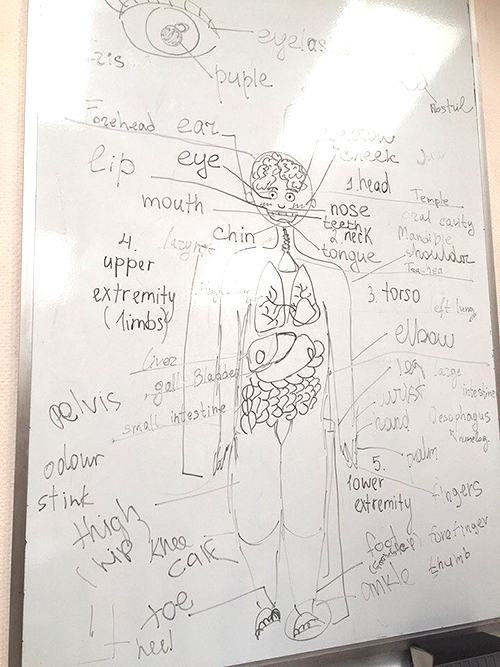 puple
Nostril
Forehead
ear
lip
eye
cheek
1 head
Temple
mouth
nose
oral cavity
teeth
chin
2. neck
Mandible
tongue
shoulder
Trachea
4.
upper
extremity
(limbs)
3. torso
left lung
elbow
Liver
gall Bladder
large
intestine
pelvis
small intestine
wrist
hand
odour
palm
stink
5.
lower
extremity
fingers
thigh
hip
knee
calf
foot
forefinger
thumb
ankle
toe
heel